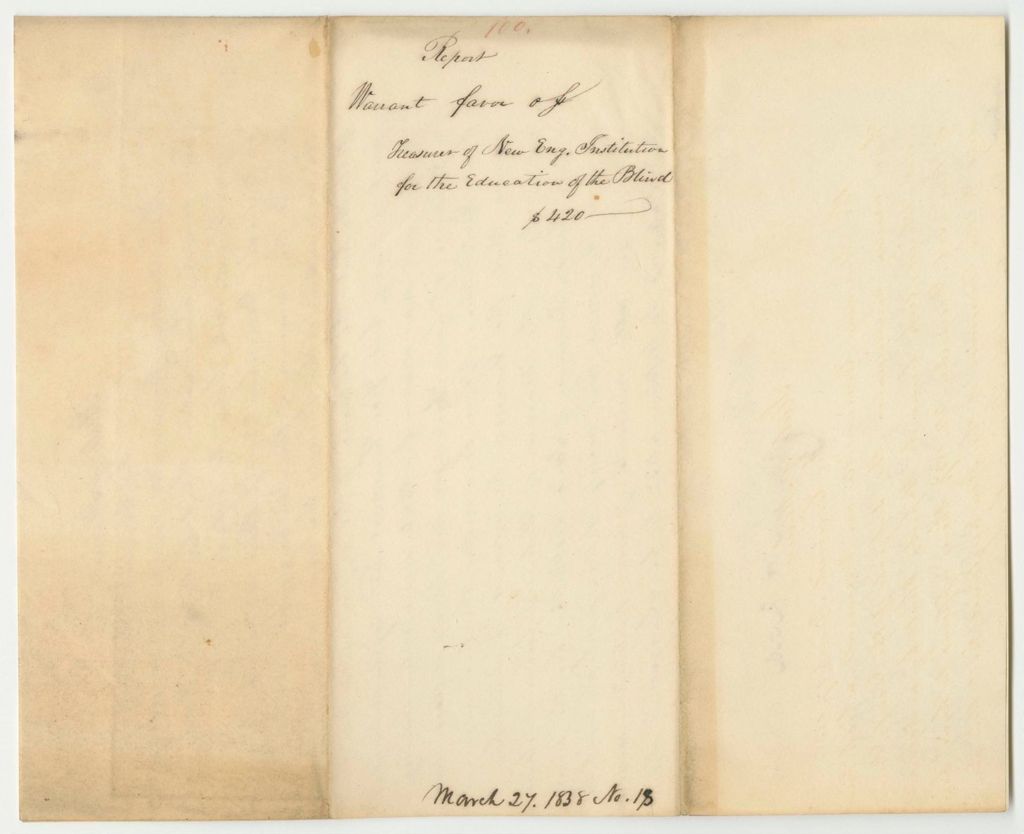 100.
Report
Warrant favor of
Treasurer of New Eng. Institution
for the Education of the Blind
$420
March 27. 1838 No. 18